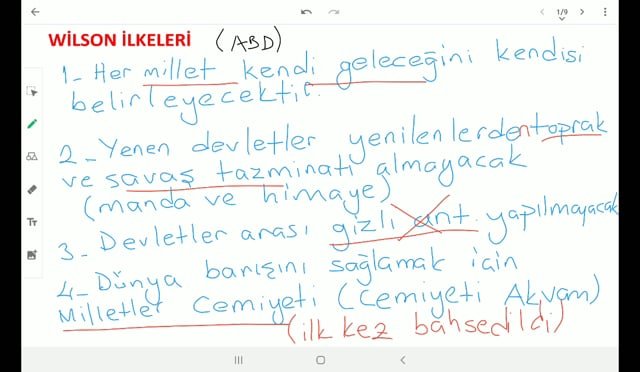 1/9
WİLSON İLKELERİ (ABD)
1- Her millet kendi geleceğini kendisi
belirleyecektir.
2- Yenen devletler yenilenlerden toprak
ve savaş tazminatı almayacak
(manda ve himaye)
3- Devletler arası gizli ant. yapılmayacak
4- Dünya barışını sağlamak için
Milletler Cemiyeti (Cemiyeti Akvam)
(ilk kez bahsedildi)
TT